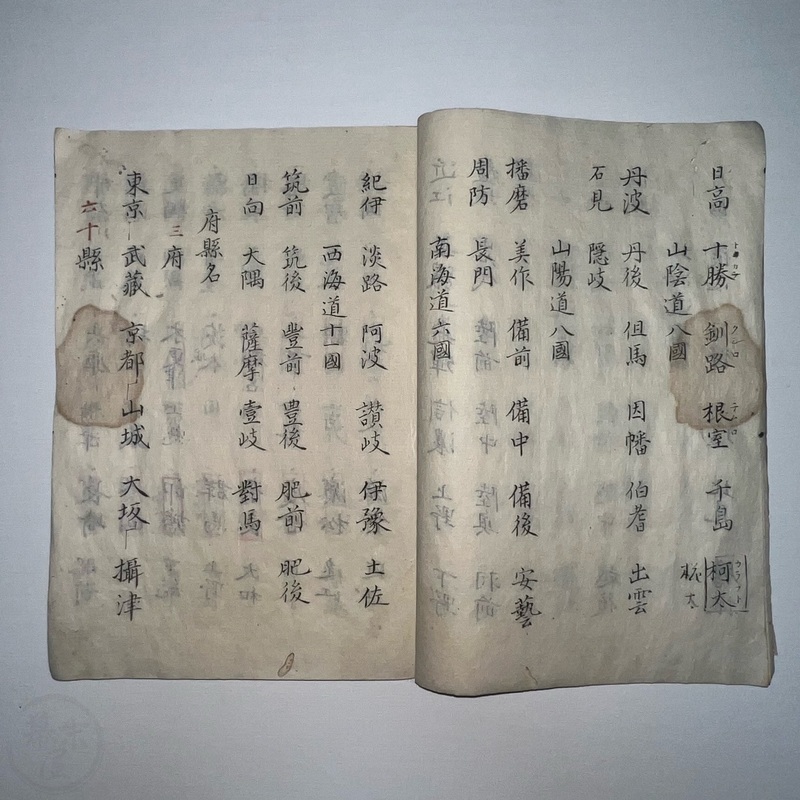 日高 十勝 釧路 根室 千島 柯太
山陰道八國
丹波 丹後 但馬 因幡 伯耆 出雲
石見 隠岐
山陽道八國
播磨 美作 備前 備中 備後 安藝
周防 長門
南海道六國
紀伊 淡路 阿波 讚岐 伊豫 土佐
西海道十一國
筑前 筑後 豊前 豊後 肥前 肥後
日向 大隅 薩摩 壹岐 對馬
府縣名
三府
東京 武藏 京都 山城 大坂 攝津
六十縣